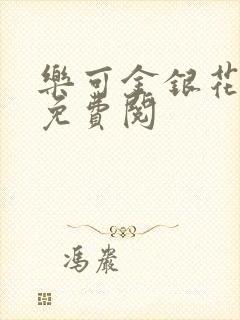 樂可金銀花
免費閱
馮嚴